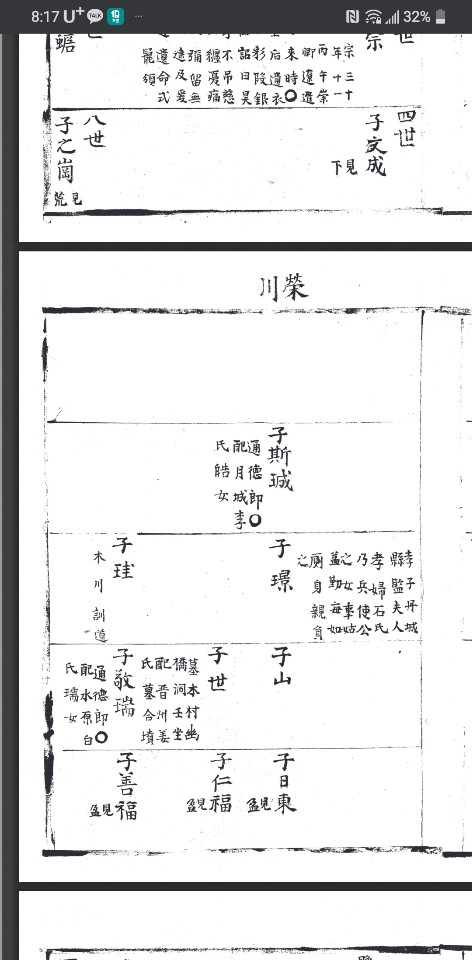 8:17 U+ TALK 32%
世
宗
宗三十
年十一
丙午榮
御違遣
來時〇
后遺衣
彩段銀
詔日昊
不吊慈
纒憂痛
彌留無
遠及爰
遺命式
罷領
蟾
四世
子文成
下見
八世
子之崗
見荒
榮川
子斯珹
通德郞〇
配月城李
氏皓女
孝子丹城
縣監夫人
孝婦石氏
乃兵使公
之女事姑
盖勤每如
厠身親負
之
子璟
子珪
木川訓道
子山
子世
墓本村幽
橋洞壬坐
配晋州姜
氏墓合墳
子敬瑞
通德郞〇
配水原白
氏瑀女
子日東
見盈
子仁福
見盈
子善福
見盈